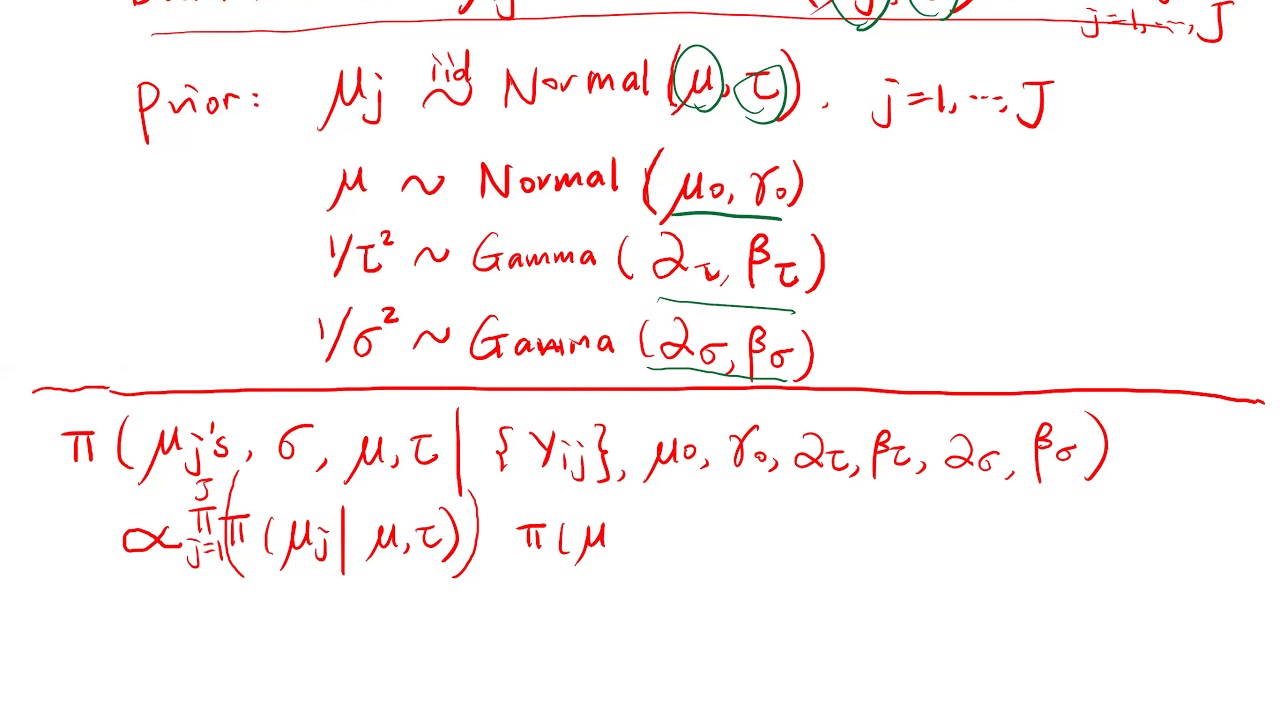 j=1, ..., J
Prior: μj iid ~ Normal (μ, τ), j=1, ..., J
μ ~ Normal (μ0, γ0)
1/τ² ~ Gamma (ατ, βτ)
1/σ² ~ Gamma (ασ, βσ)
π (μj's, σ, μ, τ | {Yij}, μ0, γ0, ατ, βτ, ασ, βσ)
∝ J π j=1 (π (μj | μ, τ)) π (μ